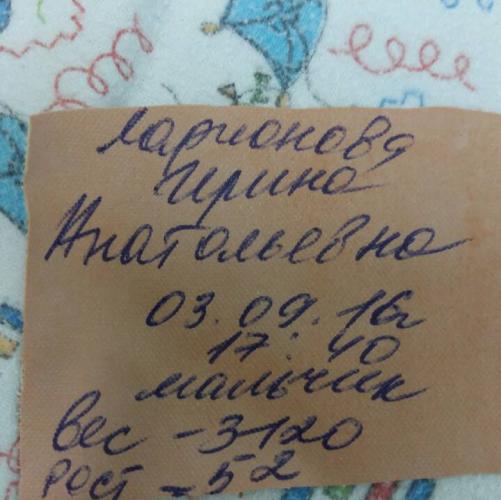 Ларионова
Ирина
Анатольевна
03.09.16г
17:40
мальчик
вес - 3120
рост - 52